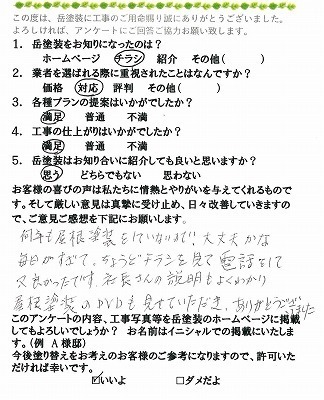 この度は、岳塗装に工事のご用命賜り誠にありがとうございました。
よろしければ、アンケートにご回答ご協力お願い致します。
1. 岳塗装をお知りになったのは？
ホームページ チラシ 紹介 その他( )
2. 業者を選ばれる際に重視されたことはなんですか？
価格 対応 評判 その他( )
3. 各種プランの提案はいかがでしたか？
満足 普通 不満
4. 工事の仕上がりはいかがでしたか？
満足 普通 不満
5. 岳塗装はお知り合いに紹介しても良いと思いますか？
思う どちらでもない 思わない
お客様の喜びの声は私たちに情熱とやりがいを与えてくれるものです。
そして厳しい意見は真摯に受け止め、日々改善していきますので、ご意見ご感想を下記にお願いします。
何年も屋根塗装をしていないので！大丈夫かな
毎日がすぎて、ちょうどチラシを見て電話をして
良かったです。社長さんの説明もよくわかり
屋根塗装のDVDも見せていただき、ありがとうございました
このアンケートの内容、工事写真等を岳塗装のホームページに掲載
してもよろしいでしょうか？ お名前はイニシャルでの掲載にいたしま
す。(例 A 様邸)
今後塗り替えをお考えのお客様のご参考になりますので、許可いた
だければ幸いです。
☑いいよ □ダメだよ